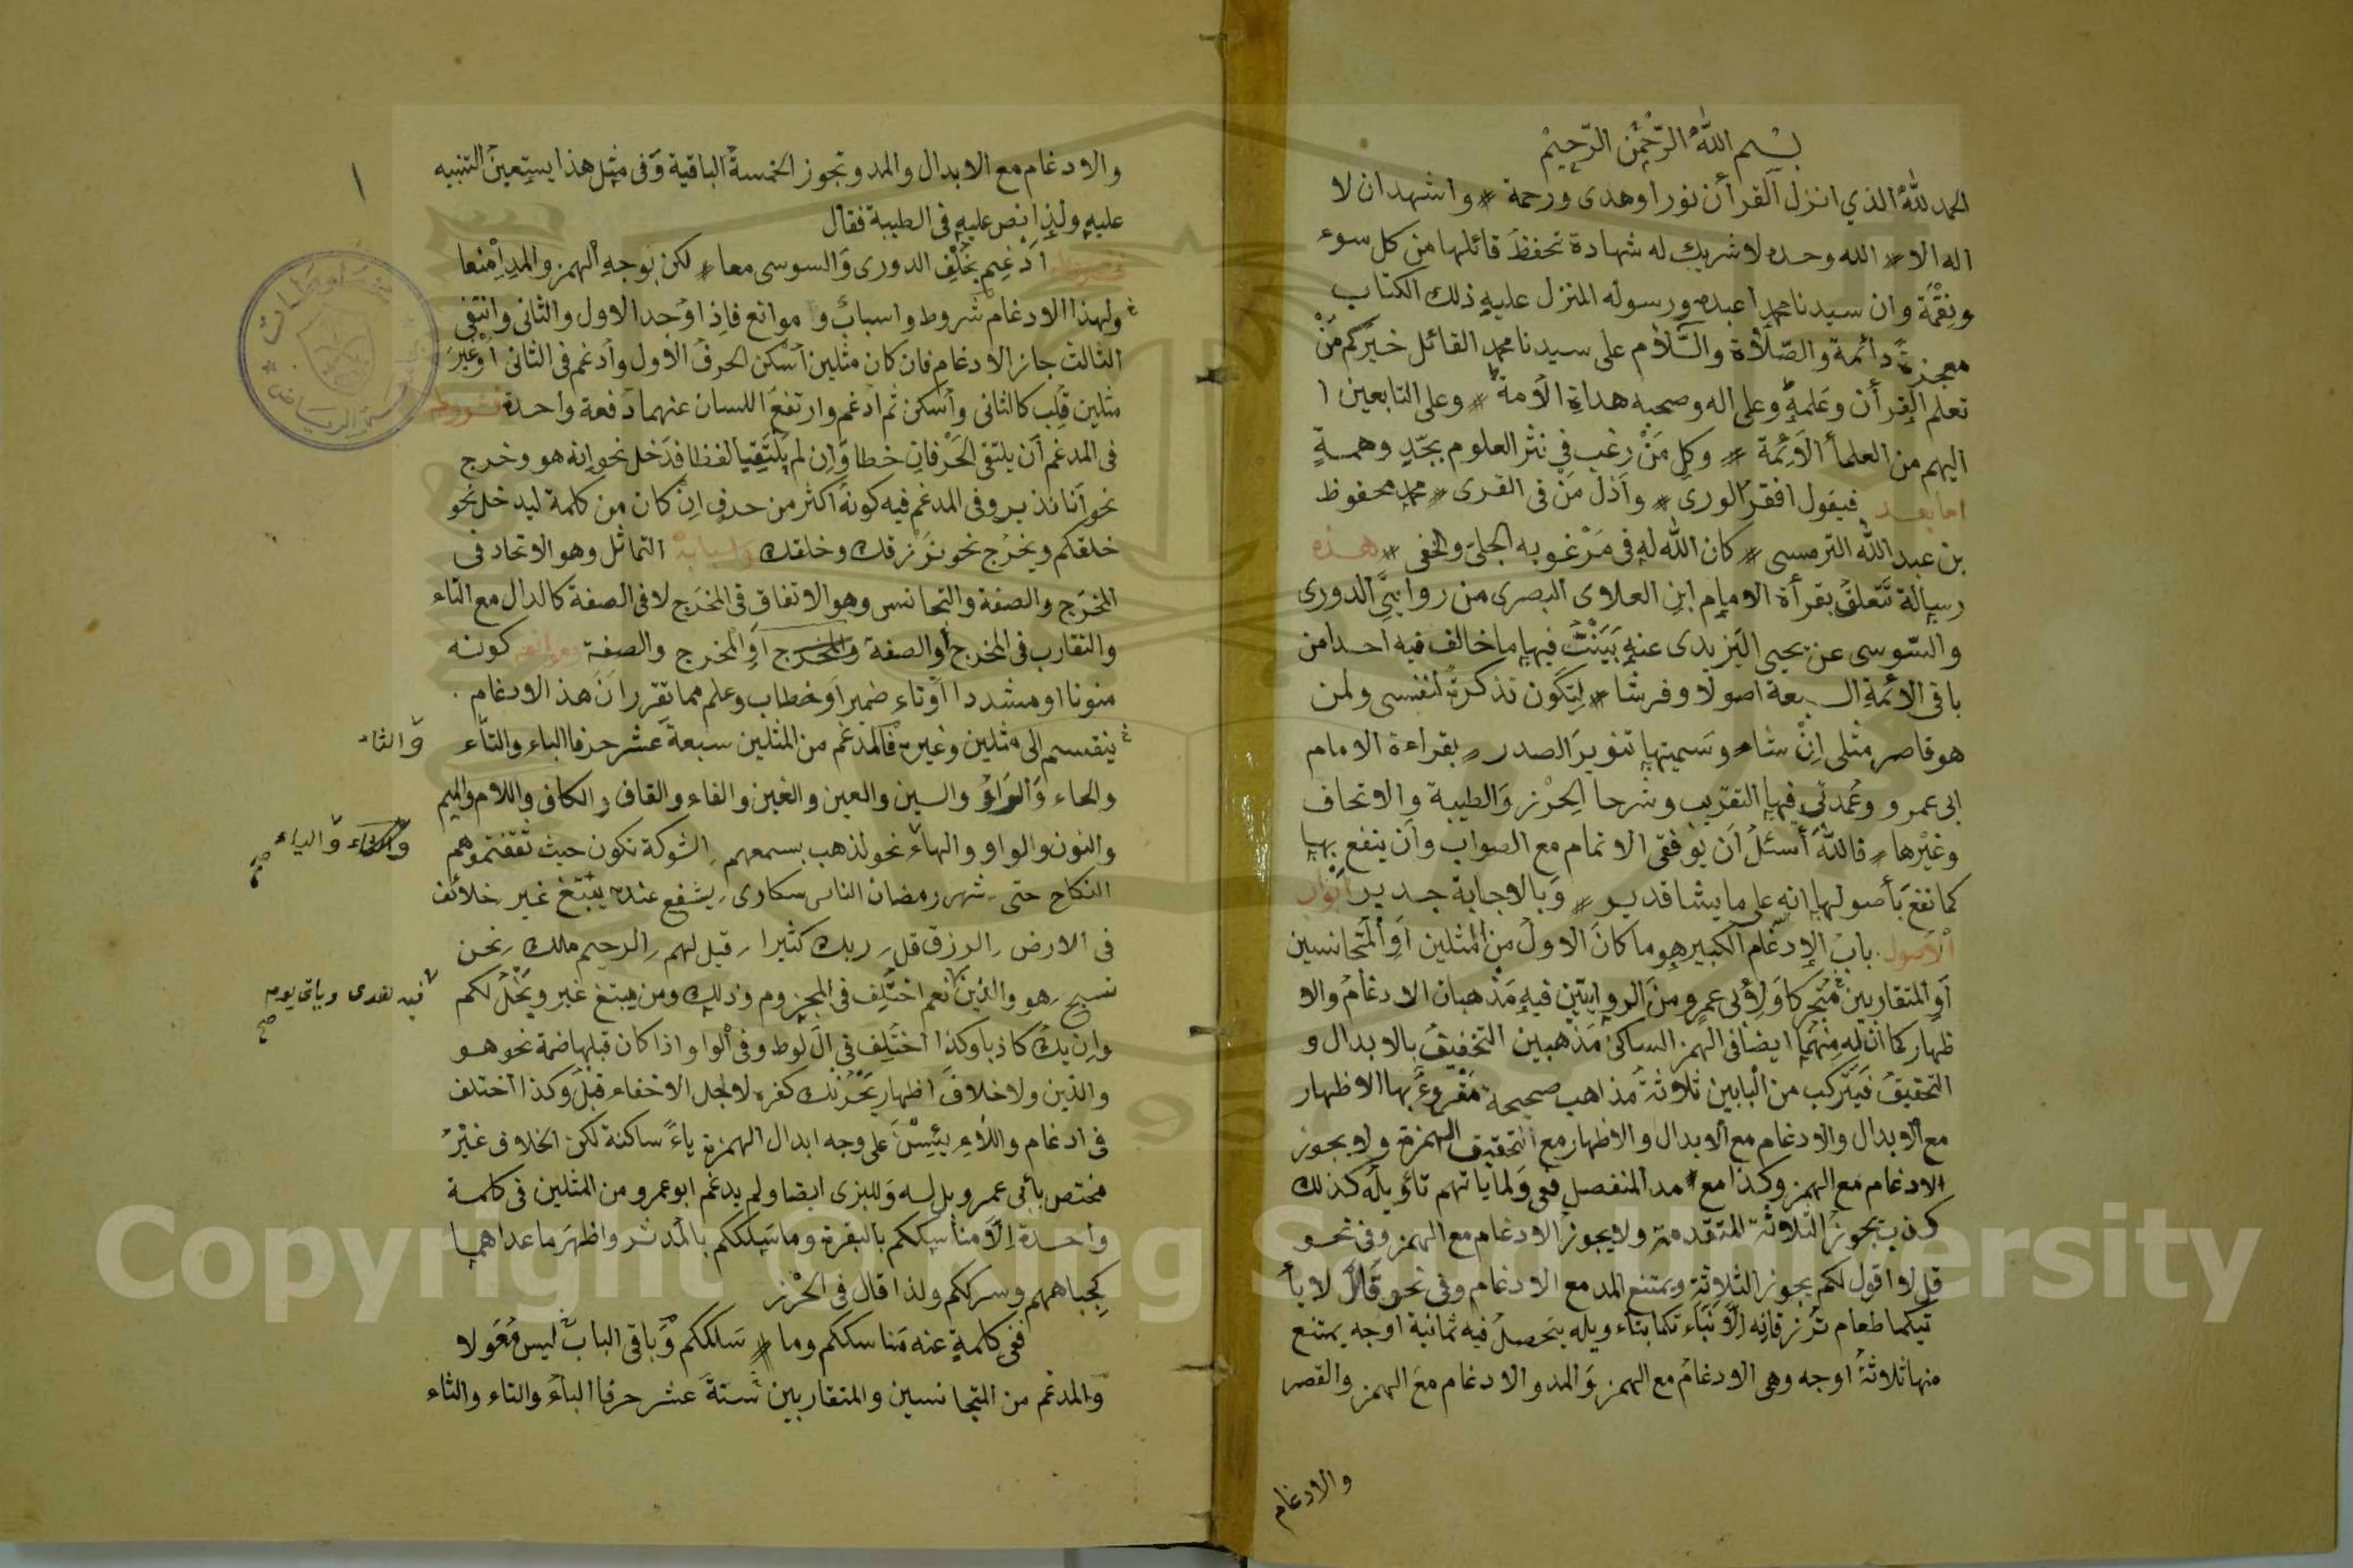 بسم الله الرحمن الرحيم
الحمد لله الذي انزل القرأن نورا وهدى ورحمة * واشهد ان لا
اله الا * الله وحده لا شريك له شهادة تحفظ قائلها من كل سوء
ونقمة وان سيدنا محمدا عبده ورسوله المنزل عليه ذلك الكتاب
معجزة دائمة والصلاة والسلام على سيدنا محمد القائل خيركم من
تعلم القرأن وعلمه وعلى اله وصحبه هداة الامة * وعلى التابعين ا
اليهم من العلمأ الائمة * وكل من رغب في نثر العلوم بجد وهمة
اما بعد فيقول افقر الورى * واذل من فى القرى * محمد محفوظ
بن عبد الله الترمسى * كان الله له فى مرغوبه الجلى والخفى * هذه
رسالة تتعلق بقرأة الامام ابن العلاوى البصرى من روايتي الدورى
والسوسى عن يحيى اليزيدى عنه بينت فيها ما خالف فيه احدا من
باقى الائمة السبعة اصولا وفرشا * لتكون تذكرة لنفسى ولمن
هو قاصر مثلى ان شاء وسميتها تنوير الصدر * بقراءة الامام
ابى عمرو وعمدتى فيها التقريب وشرحا الحرز والطيبة والاتحاف
وغيرها * فالله أسئل ان يوفقى الاتمام مع الصواب وان ينفع بها
كما نفع بأصولها انه على ما يشا قدير * وبالاجابة جدير ابواب
الاصول باب الادغام الكبير هو ما كان الاول من المثلين او المتجانسين
او المتقاربين متحركا ولأبى عمرو من الروايتين فيه مذهبان الادغام والا
ظهار كما ان له منهما ايضا فى الهمز الساكن مذهبين التخفيف بالابدال و
التحقيق فيتركب من البابين ثلاثة مذاهب صحيحة مقروء بها الاظهار
مع الابدال والادغام مع الابدال والاظهار مع التحقيق الهمزة ولا يجوز
الادغام مع الهمز وكذا مع مد المنفصل ففى ولما ياتهم تأويله كذلك
كذب يجوز الثلاثة المتقدمة ولا يجوز الادغام مع الهمز وفى نحو
قل لا اقول لكم يجوز الثلاثة ويمتنع المد مع الادغام وفى نحو قال لا يأ
تيكما طعام ترزقانه الا نبأتكما بتاءويله يتحصل فيه ثمانية اوجه يمتنع
منها ثلاثة اوجه وهى الادغام مع الهمز والمد والادغام مع الهمز والقصر
والادغام
والادغام مع الابدال والمد وتجوز الخمسة الباقية وفى مثل هذا يستعين التنبيه
عليه ولذا نص عليه فى الطيبة فقال
ادغم بخلف الدورى والسوسى معا * لكن بوجه الهمز والمد امنعا
ولهذا الادغام شروط واسباب و موانع فاذا وجد الاول والثانى وانتفى
الثالث جاز الادغام فان كان مثلين اسكن الحرف الاول وأدغم فى الثانى او غير
مثلين قلب كالثانى واسكن ثم ادغم وارتفع اللسان عنهما دفعة واحدة فشروطه
فى المدغم أن يلتقى الحرفان خطا وان لم يلتقيا لفظا فدخل نحو انه هو وخرج
نحو أنا نذير وفى المدغم فيه كونه اكثر من حرف ان كان من كلمة ليدخل نحو
خلقكم ويخرج نحو نرزقك وخلقك واسبابه التماثل وهو الاتحاد فى
المخرج والصفة والتجانس وهو الاتفاق فى المخرج لا فى الصفة كالدال مع التاء
والتقارب فى المخرج أو الصفة والمخرج او المخرج والصفة وموانعه كونه
منونا او مشددا او تاء ضمير او خطاب وعلم مما تقرر ان هذ الادغام
ينقسم الى مثلين وغيره فالمدغم من المثلين سبعة عشر حرفا الباء والتاء
والثاء
والحاء والراؤ والسين والعين والغين والفاء والقاف والكاف واللام والميم
والنون والواو والهاء نحو لذهب بسمعهم الشوكة تكون حيث ثقفتموهم
والياء صح
النكاح حتى شهر رمضان الناس سكارى يشفع عنده يبتغ غير خلائف
فى الارض الرزق قل ربك كثيرا قيل لهم الرحيم ملك نحن
نسبح هو والذين نعم اختلف فى المجزوم وذلك ومن يبتغ غير ويخل لكم
فيه هدى ويأتى يوم صح
وان يك كاذبا وكذا اختلف فى ال لوط وفى الواو اذا كان قبلها ضمة نحو هو
والذين ولا خلاف اظهار يحزنك كفره لاجل الاخفاء قبل وكذا اختلف
فى ادغام واللاء يئسن على وجه ابدال الهمزة ياء ساكنة لكن الخلاف غير
مختص بأبى عمرو بل له وللبزى ايضا ولم يدغم ابو عمرو من المثلين فى كلمة
واحدة الا مناسككم بالبقرة وما سلككم بالمدثر واظهر ما عداهما
كجباههم وشرككم ولذا قال فى الحرز
ففى كلمة عنه مناسككم وما * سلككم وباقى الباب ليس معولا
والمدغم من المتجانسين والمتقاربين ستة عشر حرفا الباء والتاء والثاء
Copyright © King Saud University